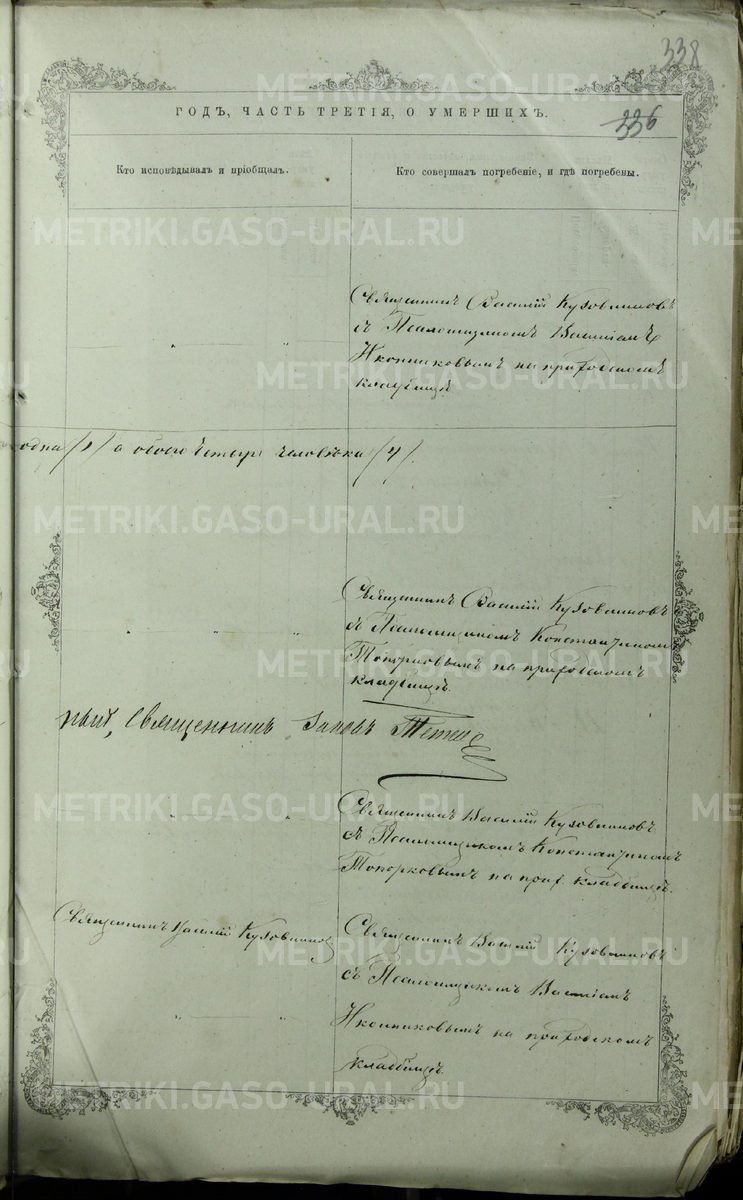 338
336
ГОДЪ, ЧАСТЬ ТРЕТІЯ, О УМЕРШИХЪ.
Кто исповѣдывалъ и пріобщалъ.
Кто совершалъ погребеніе, и гдѣ погребены.
Священникъ Василій Кузовниковъ
съ Псаломщикомъ Вассіаномъ
Иконниковымъ на приходскомъ
кладбищѣ.
одна /1/ а обоего четыре человѣка /4/.
Священникъ Василій Кузовниковъ
съ Псаломщикомъ Константиномъ
Топорковымъ на приходскомъ
кладбищѣ.
ный, Священникъ Іаковъ
Священникъ Василій Кузовниковъ
съ Псаломщикомъ Константиномъ
Топорковымъ на прих. кладбищѣ.
Священникъ Василій Кузовниковъ
Священникъ Василій Кузовниковъ
съ Псаломщикомъ Вассіаномъ
Иконниковымъ на приходскомъ
кладбищѣ
METRIKI.GASO-URAL.RU